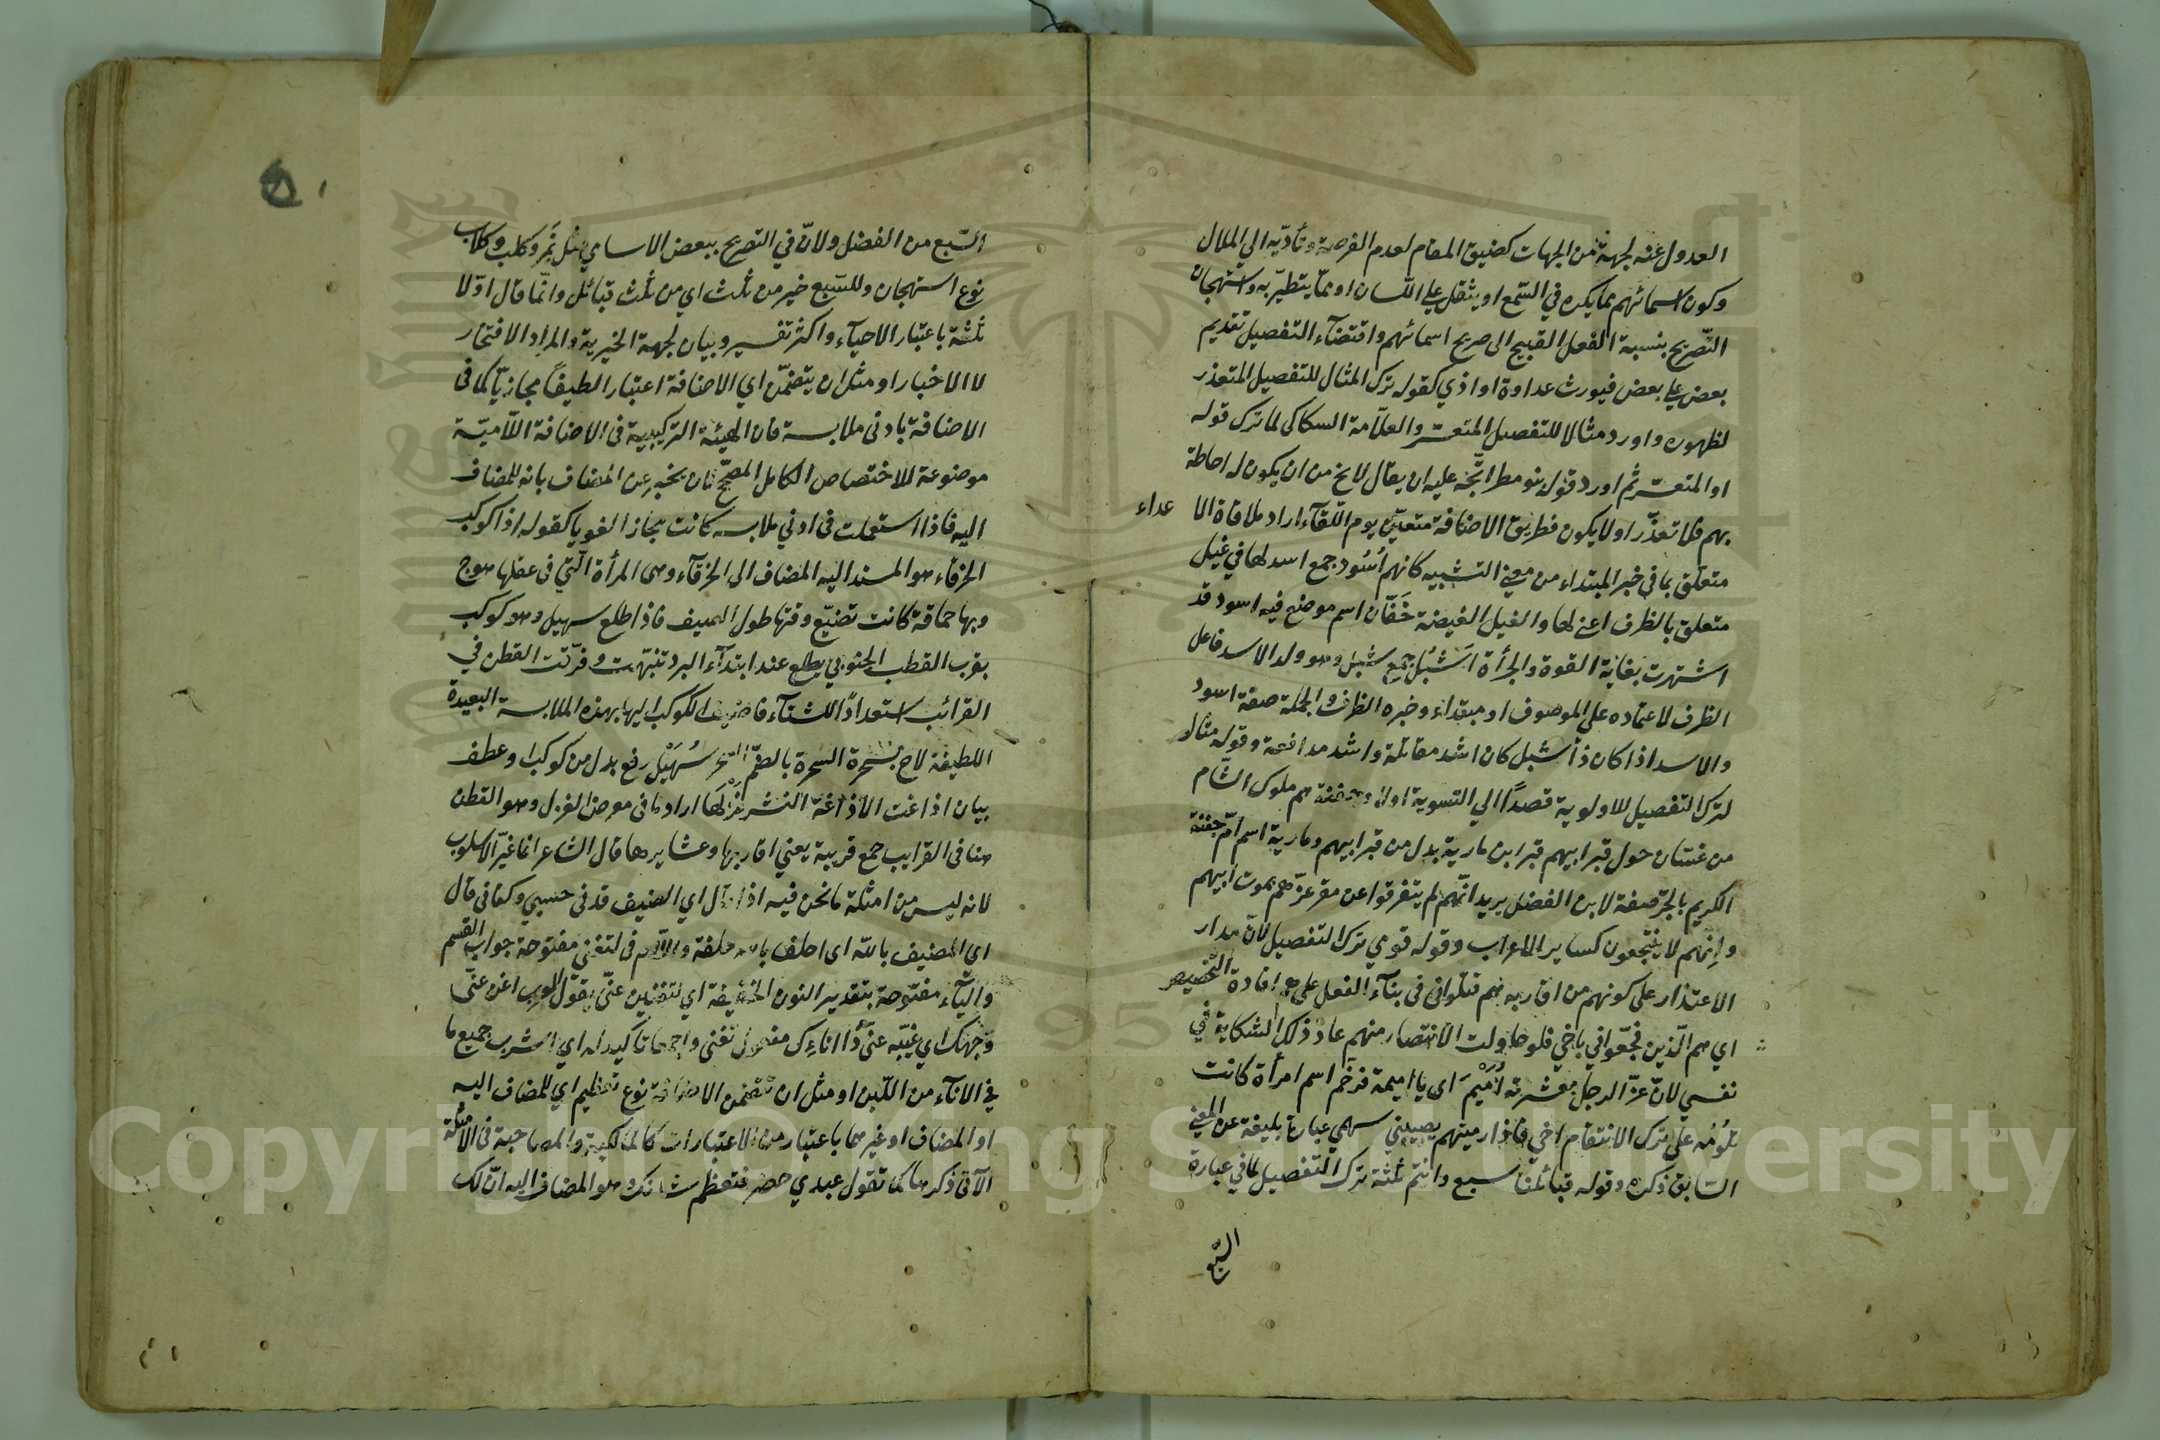 العدول عنه لجهة من الجهات كضيق المقام لعدم الفرصة وتأديه الي الملال
وكون اسمائهم مما يكره في السمع او يثقل علي اللسان او مما يتطير به واستهجان
التصريح بنسبة الفعل القبيح الى صريح اسمائهم واقتضاء التفصيل تقديم
بعض علي بعض فيورث عداوة او اذي كقوله ترك المثال للتفصيل المتعذر
لظهوره واورد مثالا للتفصيل المتعسر والعلامة السكاكى لما ترك قوله
او المتعسر ثم اورد قوله بنو مطر اتجه عليه ان يقال لا يخ من ان يكون له احاطة
بهم فلا تعذر او لا يكون فطريق الاضافة متعين يوم اللقاء اراد ملاقاة الا
عداء
متعلق بما في خبر المبتداء من معني التشبيه كانهم اسود جمع اسد لها في غيل
متعلق بالظرف اعني لها والغيل الغيضة خفان اسم موضع فيه اسود قد
اشتهرت بغاية القوة والجرأة اشبل جمع شبل وهو ولد الاسد فاعل
الظرف لاعتماده على الموصوف او مبتداء وخبره الظرف والجملة صفة اسود
والاسد اذا كان ذا شبل كان اشد مقاتلة واشد مدافعة وقوله مثال
لترك التفصيل للاولوية قصدا الي التسوية اولاد جفنة هم ملوك الشام
من غسان حول قبر ابيهم قبر ابن مارية بدل من قبر ابيهم ومارية اسم ام جفنة
الكريم بالجر صفة لابن الفضل يريد انهم لم يتفرقوا عن مقر عزهم بموت ابيهم
وانهم لا ينتجعون كساير الاعراب وقوله قومي ترك التفصيل لان مدار
الاعتذار على كونهم من اقاربه هم قتلوا فى بناء الفعل على هم افادة التخصيص
اي هم الذين فجعواني باخي فلو حاولت الانتصار منهم عاد ذلك الشكاية في
نفسي لان عز الرجل بعشيرته اميم اى يا اميمة فرخم اسم امرأة كانت
تلومه على ترك الانتقام اخي فاذا رميتهم يصيبني سهمي عبارة بليغة عن المعني
السابق ذكره وقوله قبائلنا سبع وانتم ثلثة ترك التفصيل لما في عبارة
السبع
السبع من الفضل ولان في التصريح ببعض الاسامي مثل نمر وكلب وكلاب
نوع استهجان وللسبع خير من ثلث اي من ثلث قبائل وانما قال اولا
ثلثة باعتبار الاحياء واكثر تفسير وبيان لجهة الخيرية والمراد الافتخار
لا الاخبار او مثل ان يتضمن اي الاضافة اعتبارا لطيفا مجازيا كما فى
الاضافة بادنى ملابسة فان الهيئة التركيبية فى الاضافة اللامية
موضوعة للاختصاص الكامل المصحح لان يخبر عن المضاف بانه للمضاف
اليه فاذا استعملت فى ادني ملابسه كانت مجازا لغويا كقوله اذا كوكب
الخرقاء هو المسند اليه المضاف الى الخرقاء وهى المرأة التي فى عقلها هوج
وبها حماقة كانت تضيع وقتها طول الصيف فاذا طلع سهيل وهو كوكب
بقرب القطب الجنوبي يطلع عند ابتداء البرد تنبهت وفرقت القطن في
القرائب استعدادا للشتاء فاضيف الكوكب اليها بهذه الملابسة البعيدة
اللطيفة لاح بسحرة السحرة بالضم السحر سهيل رفع بدل من كوكب او عطف
بيان اذاعت الاذاعة النشر غزلها اراد ما فى معرض الغزل وهو القطن
هنا فى القرايب جمع قريبة يعني اقاربها وعشايرها قال الشاعر انما غير الاسلوب
لانه ليس من امثلة ما نحن فيه اذا قال اي الضيف قدنى حسبي وكفانى قال
اي المضيف بالله اى احلف بالله حلفة واللام فى لتغني مفتوحة جواب القسم
والياء مفتوحة بتقدير النون الخفيفة اي لتغنين عني يقول العرب اغن عني
وجهك اي غيبه عني ذا انائك مفعول تغنى واجمعا تاكيد له اي اشرب جميع ما
في الاناء من اللبن او مثل ان تتضمن الاضافة نوع تعظيم اي للمضاف اليه
او المضاف او غيرهما باعتبار من الاعتبارات كالمالكية والمصاحبة فى الامثلة
الآتى ذكرها كما تقول عبدي حضر فتعظم شانك وهو المضاف اليه ان لك
Copyright © King Saud University